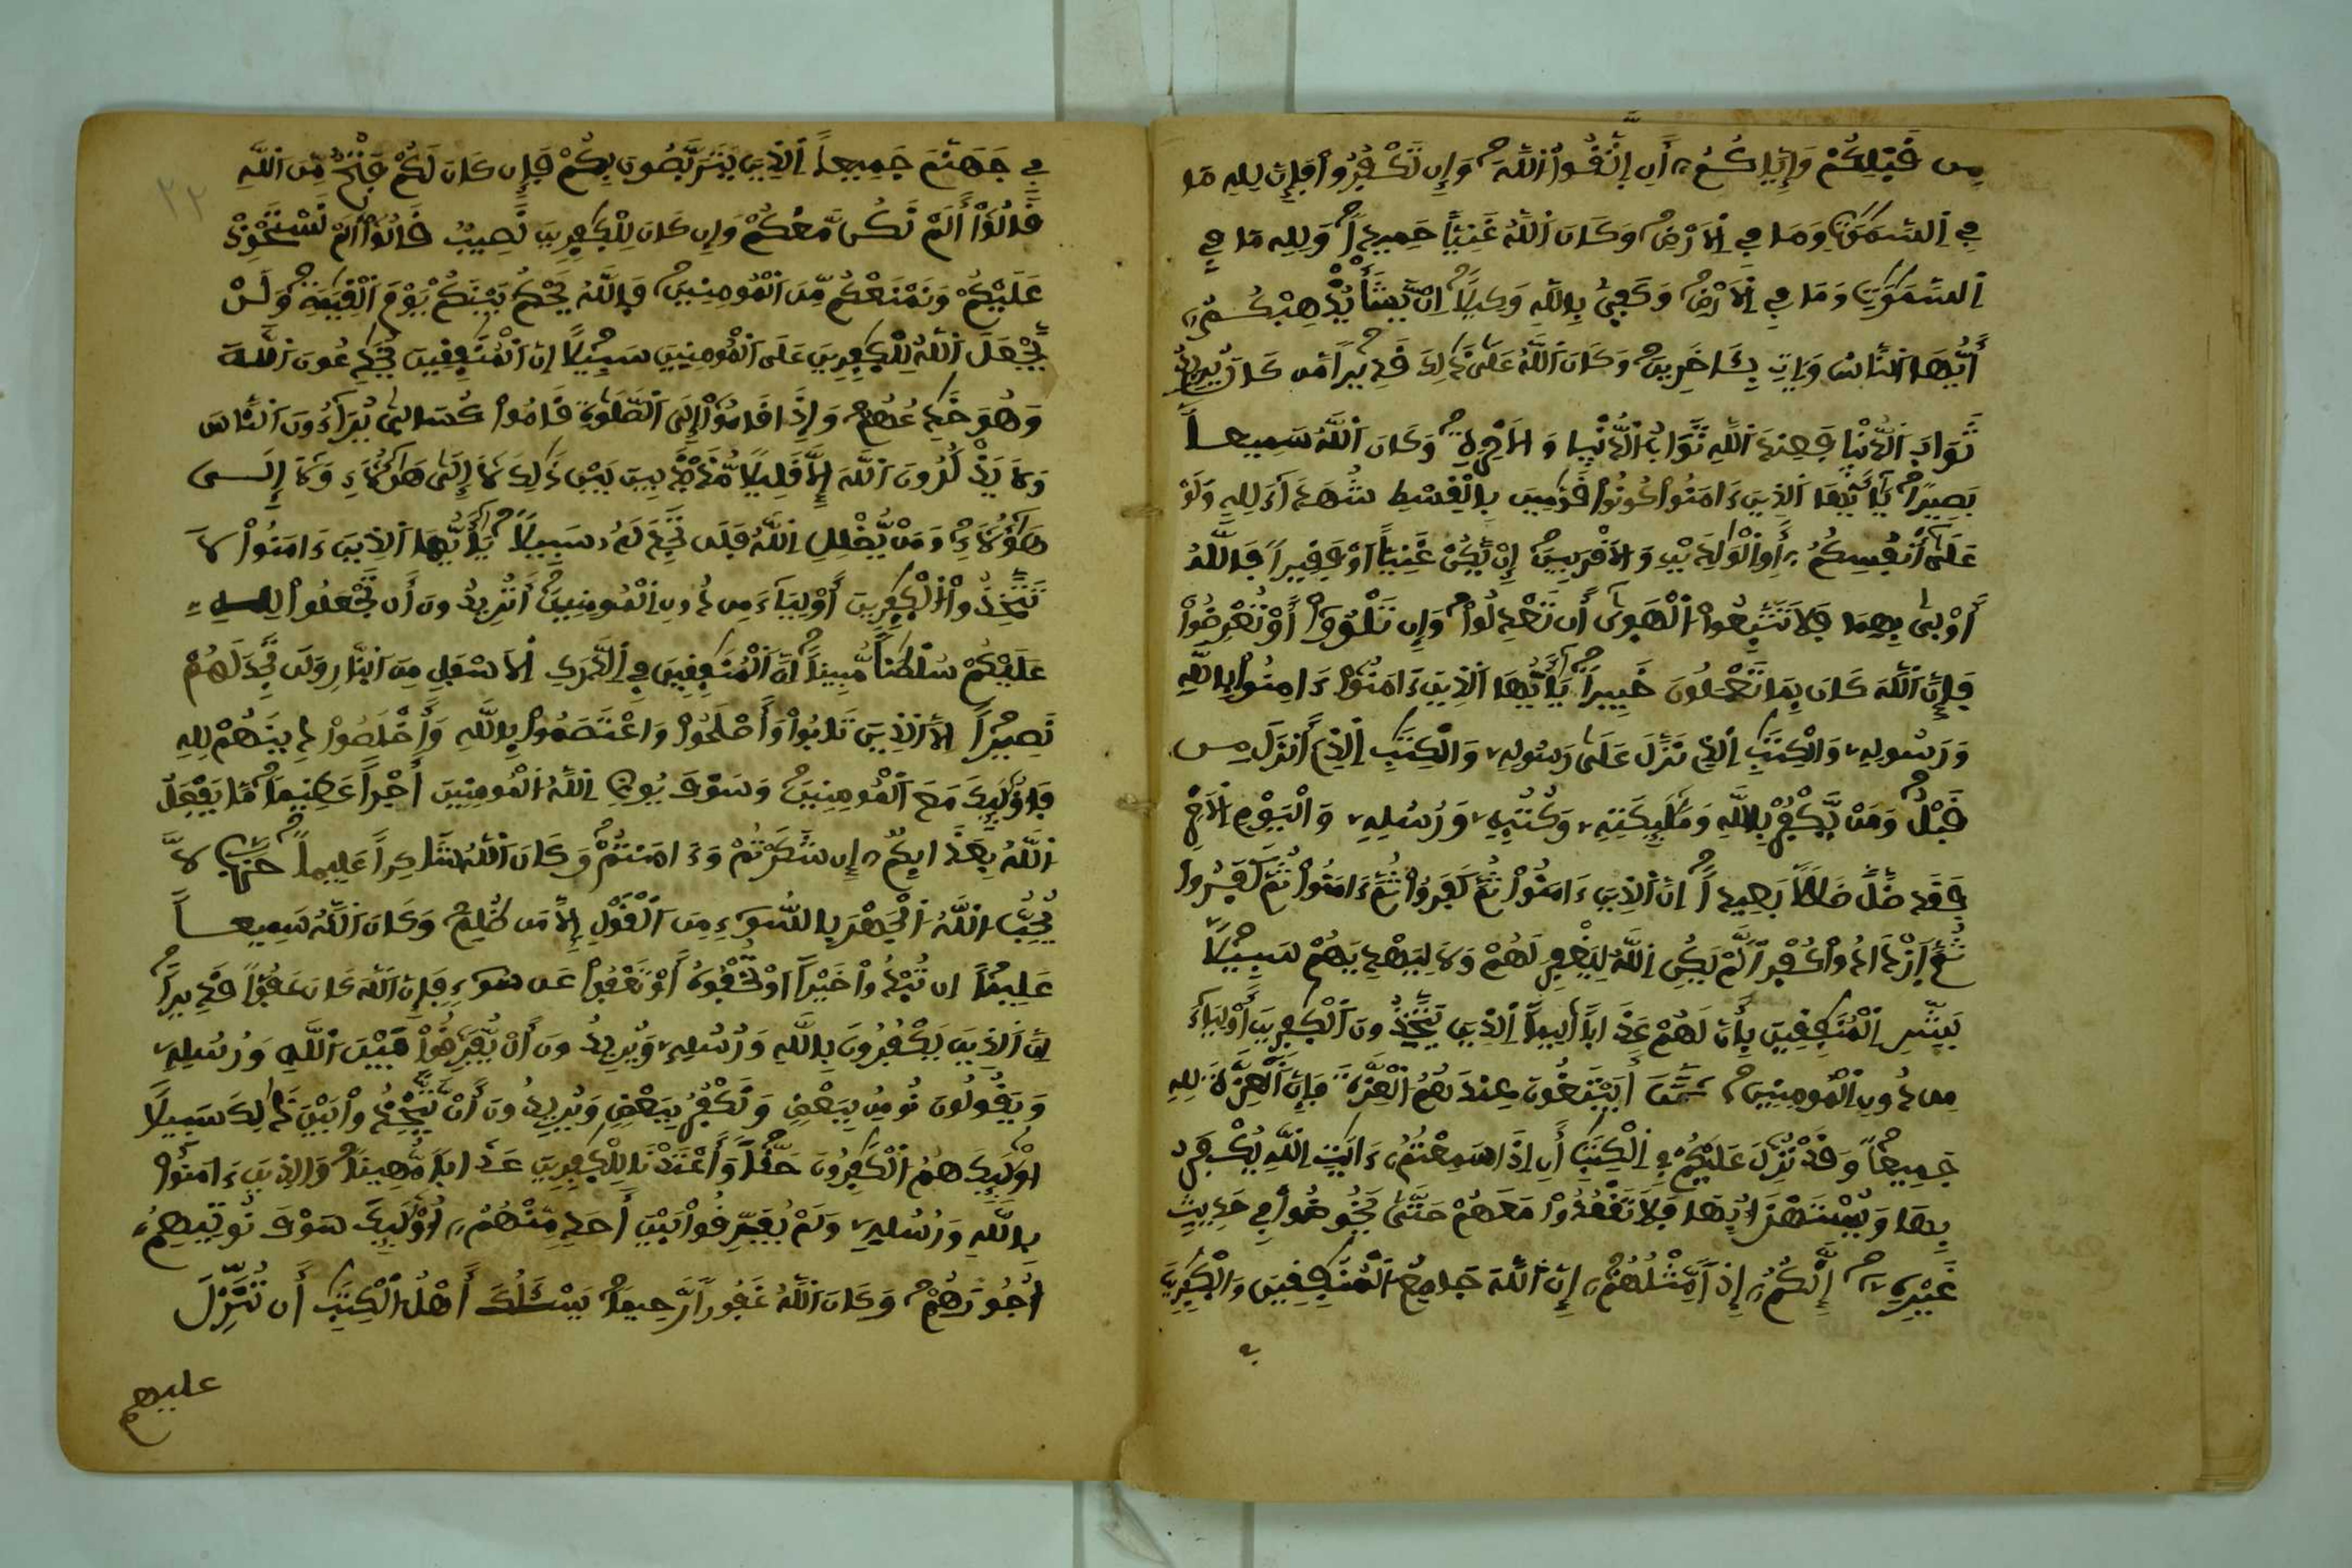 مِن قَبْلِكُمْ وَإِيَّاكُمُۥ أَنِ اِتَّقُوا اللَّهَ وَإِن تَكْفُرُوا فَإِنَّ لِلهِ مَا
فِي السَّمَٰوَٰتِ وَمَا فِي اَلَارْضِ وَكَانَ اَللَّهُ غَنِيّاً حَمِيداً وَلِلهِ مَا فِي
اِلسَّمَٰوَٰتِ وَمَا فِي اِلَارْضِ وَكَفِىٰ بِاللَّهِ وَكِيلًا اِنْ يَّشَأْ يُذْهِبْكُمُۥ
أَيُّهَا اَلنَّاسُ وَيَاتِ بِـَٔاخَرِينَ وَكَانَ اَللَّهُ عَلَىٰ ذَٰلِكَ قَدِيراً مَّن كَانَ يُرِيدُ
ثَوَابَ اَلدُّنْيا فَعِندَ اَللَّهِ ثَوَابُ اُلدُّنْيا وَالَاخِرَةِ وَكَانَ اَللَّهُ سَمِيعاً
بَصِيراً يَٰأَيُّهَا اَلذِينَ ءَامَنُوا كُونُوا قَوَّٰمِينَ بِالْقِسْطِ شُهَدَآءَ لِلهِ وَلَوْ
عَلَىٰ أَنفُسِكُمُۥ أَوِ اِلْوَٰلِدَيْنِ وَالَاقْرَبِينَ إِنْ يَّكُنْ غَنِيّاً اَوْ فَقِيراً فَاللَّهُ
أَوْلىٰ بِهِمَا فَلَا تَتَّبِعُوا اُلْهَوىٰ أَن تَعْدِلُوا وَإِن تَلْوُۥٓا أَوْ تُعْرِضُوا
فَإِنَّ اَللَّهَ كَانَ بِمَا تَعْمَلُونَ خَبِيراً يَٰأَيُّهَا اَلذِينَ ءَامَنُوا ءَامِنُوا بِاللَّهِ
وَرَسُولِهِۦ وَالْكِتَٰبِ اِلذِي نَزَّلَ عَلَىٰ رَسُولِهِۦ وَالْكِتَٰبِ اِلذِي أَنزَلَ مِن
قَبْلُ وَمَنْ يَّكْفُرْ بِاللَّهِ وَمَلَٰئِكَتِهِۦ وَكُتُبِهِۦ وَرُسُلِهِۦ وَالْيَوْمِ اِلَاخِرِ
فَقَد ضَّلَّ ضَلَٰلاً بَعِيداً اِنَّ اَلذِينَ ءَامَنُوا ثُمَّ كَفَرُوا ثُمَّ ءَامَنُوا ثُمَّ كَفَرُوا
ثُمَّ اَزْدَادُوا كُفْراً لَّمْ يَكُنِ اِللَّهُ لِيَغْفِرَ لَهُمْ وَلَا لِيَهْدِيَهُمْ سَبِيلًا
بَشِّرِ اِلْمُنَٰفِقِينَ بِأَنَّ لَهُمْ عَذَاباً اَلِيماً اِلذِينَ يَتَّخِذُونَ اَلْكَٰفِرِينَ أَوْلِيَآءَ
مِن دُونِ اِلْمُومِنِينَ أَيَبْتَغُونَ عِندَهُمُ اُلْعِزَّةَ فَإِنَّ اَلْعِزَّةَ لِلهِ
جَمِيعاً وَقَدْ نُزِّلَ عَلَيْكُمْ فِي اِلْكِتَٰبِ أَنِ اِذَا سَمِعْتُمُۥ ءَايَٰتِ اِللَّهِ يُكْفَرُ
بِهَا وَيُسْتَهْزَأُ بِهَا فَلَا تَقْعُدُوا مَعَهُمْ حَتَّىٰ يَخُوضُوا فِي حَدِيثٍ
غَيْرِهِۦ إِنَّكُمُۥ إِذاً مِّثْلُهُمُۥ إِنَّ اَللَّهَ جَامِعُ اُلْمُنَٰفِقِينَ وَالْكَٰفِرِينَ
فِي جَهَنَّمَ جَمِيعاً اِلذِينَ يَتَرَبَّصُونَ بِكُمْ فَإِن كَانَ لَكُمْ فَتْحٌ مِّنَ اَللَّهِ
قَالُوا أَلَمْ نَكُن مَّعَكُمْ وَإِن كَانَ لِلْكَٰفِرِينَ نَصِيبٌ قَالُوا أَلَمْ نَسْتَحْوِذْ
عَلَيْكُمْ وَنَمْنَعْكُم مِّنَ اَلْمُومِنِينَ فَاللَّهُ يَحْكُمُ بَيْنَكُمْ يَوْمَ اَلْقِيَٰمَةِ وَلَنْ
يَّجْعَلَ اَللَّهُ لِلْكَٰفِرِينَ عَلَى اَلْمُومِنِينَ سَبِيلًا اِنَّ اَلْمُنَٰفِقِينَ يُخَٰدِعُونَ اَللَّهَ
وَهُوَ خَٰدِعُهُمْ وَإِذَا قَامُوا إِلَى اَلصَّلَوٰةِ قَامُوا كُسَالىٰ يُرَآءُونَ اَلنَّاسَ
وَلَا يَذْكُرُونَ اَللَّهَ إِلَّا قَلِيلًا مُّذَبْذَبِينَ بَيْنَ ذَٰلِكَ لَا إِلَىٰ هَٰؤُلَآءِ وَلَا إِلَىٰ
هَٰؤُلَآءِ وَمَنْ يُّضْلِلِ اِللَّهُ فَلَن تَجِدَ لَهُۥ سَبِيلًا يَٰأَيُّهَا اَلذِينَ ءَامَنُوا لَا
تَتَّخِذُوا اُلْكَٰفِرِينَ أَوْلِيَآءَ مِن دُونِ اِلْمُومِنِينَ أَتُرِيدُونَ أَن تَجْعَلُوا لِلهِ
عَلَيْكُمْ سُلْطَٰناً مُّبِيناً اِنَّ اَلْمُنَٰفِقِينَ فِي اِلدَّرَكِ اِلَاسْفَلِ مِنَ اَلنَّارِ وَلَن تَجِدَ لَهُمْ
نَصِيراً اِلَّا اَلذِينَ تَابُوا وَأَصْلَحُوا وَاعْتَصَمُوا بِاللَّهِ وَأَخْلَصُوا دِينَهُمْ لِلهِ
فَأُوْلَٰئِكَ مَعَ اَلْمُومِنِينَ وَسَوْفَ يُوتِ اِللَّهُ اُلْمُومِنِينَ أَجْراً عَظِيماً مَّا يَفْعَلُ
اُللَّهُ بِعَذَابِكُمُۥ إِن شَكَرْتُمْ وَءَامَنتُمْ وَكَانَ اَللَّهُ شَاكِراً عَلِيماً حزب لَّا
يُحِبُّ اُللَّهُ اُلْجَهْرَ بِالسُّوٓءِ مِنَ اَلْقَوْلِ إِلَّا مَن ظُلِمَ وَكَانَ اَللَّهُ سَمِيعاً
عَلِيماً اِن تُبْدُوا خَيْراً اَوْ تُخْفُوهُ أَوْ تَعْفُوا عَن سُوٓءٍ فَإِنَّ اَللَّهَ كَانَ عَفُوّاً قَدِيراً
اِنَّ اَلذِينَ يَكْفُرُونَ بِاللَّهِ وَرُسُلِهِۦ وَيُرِيدُونَ أَنْ يُّفَرِّقُوا بَيْنَ اَللَّهِ وَرُسُلِهِۦ
وَيَقُولُونَ نُومِنُ بِبَعْضٍ وَنَكْفُرُ بِبَعْضٍ وَيُرِيدُونَ أَنْ يَّتَّخِذُوا بَيْنَ ذَٰلِكَ سَبِيلًا
اُوْلَٰئِكَ هُمُ اُلْكَٰفِرُونَ حَقّاً وَأَعْتَدْنَا لِلْكَٰفِرِينَ عَذَاباً مُّهِيناً وَالذِينَ ءَامَنُوا
بِاللَّهِ وَرُسُلِهِۦ وَلَمْ يُفَرِّقُوا بَيْنَ أَحَدٍ مِّنْهُمُۥ أُوْلَٰئِكَ سَوْفَ نُوتِيهِمُۥ
أُجُورَهُمْ وَكَانَ اَللَّهُ غَفُوراً رَّحِيماً يَسْـَٔلُكَ أَهْلُ اُلْكِتَٰبِ أَن تُنَزِّلَ
عليهم
٢٢